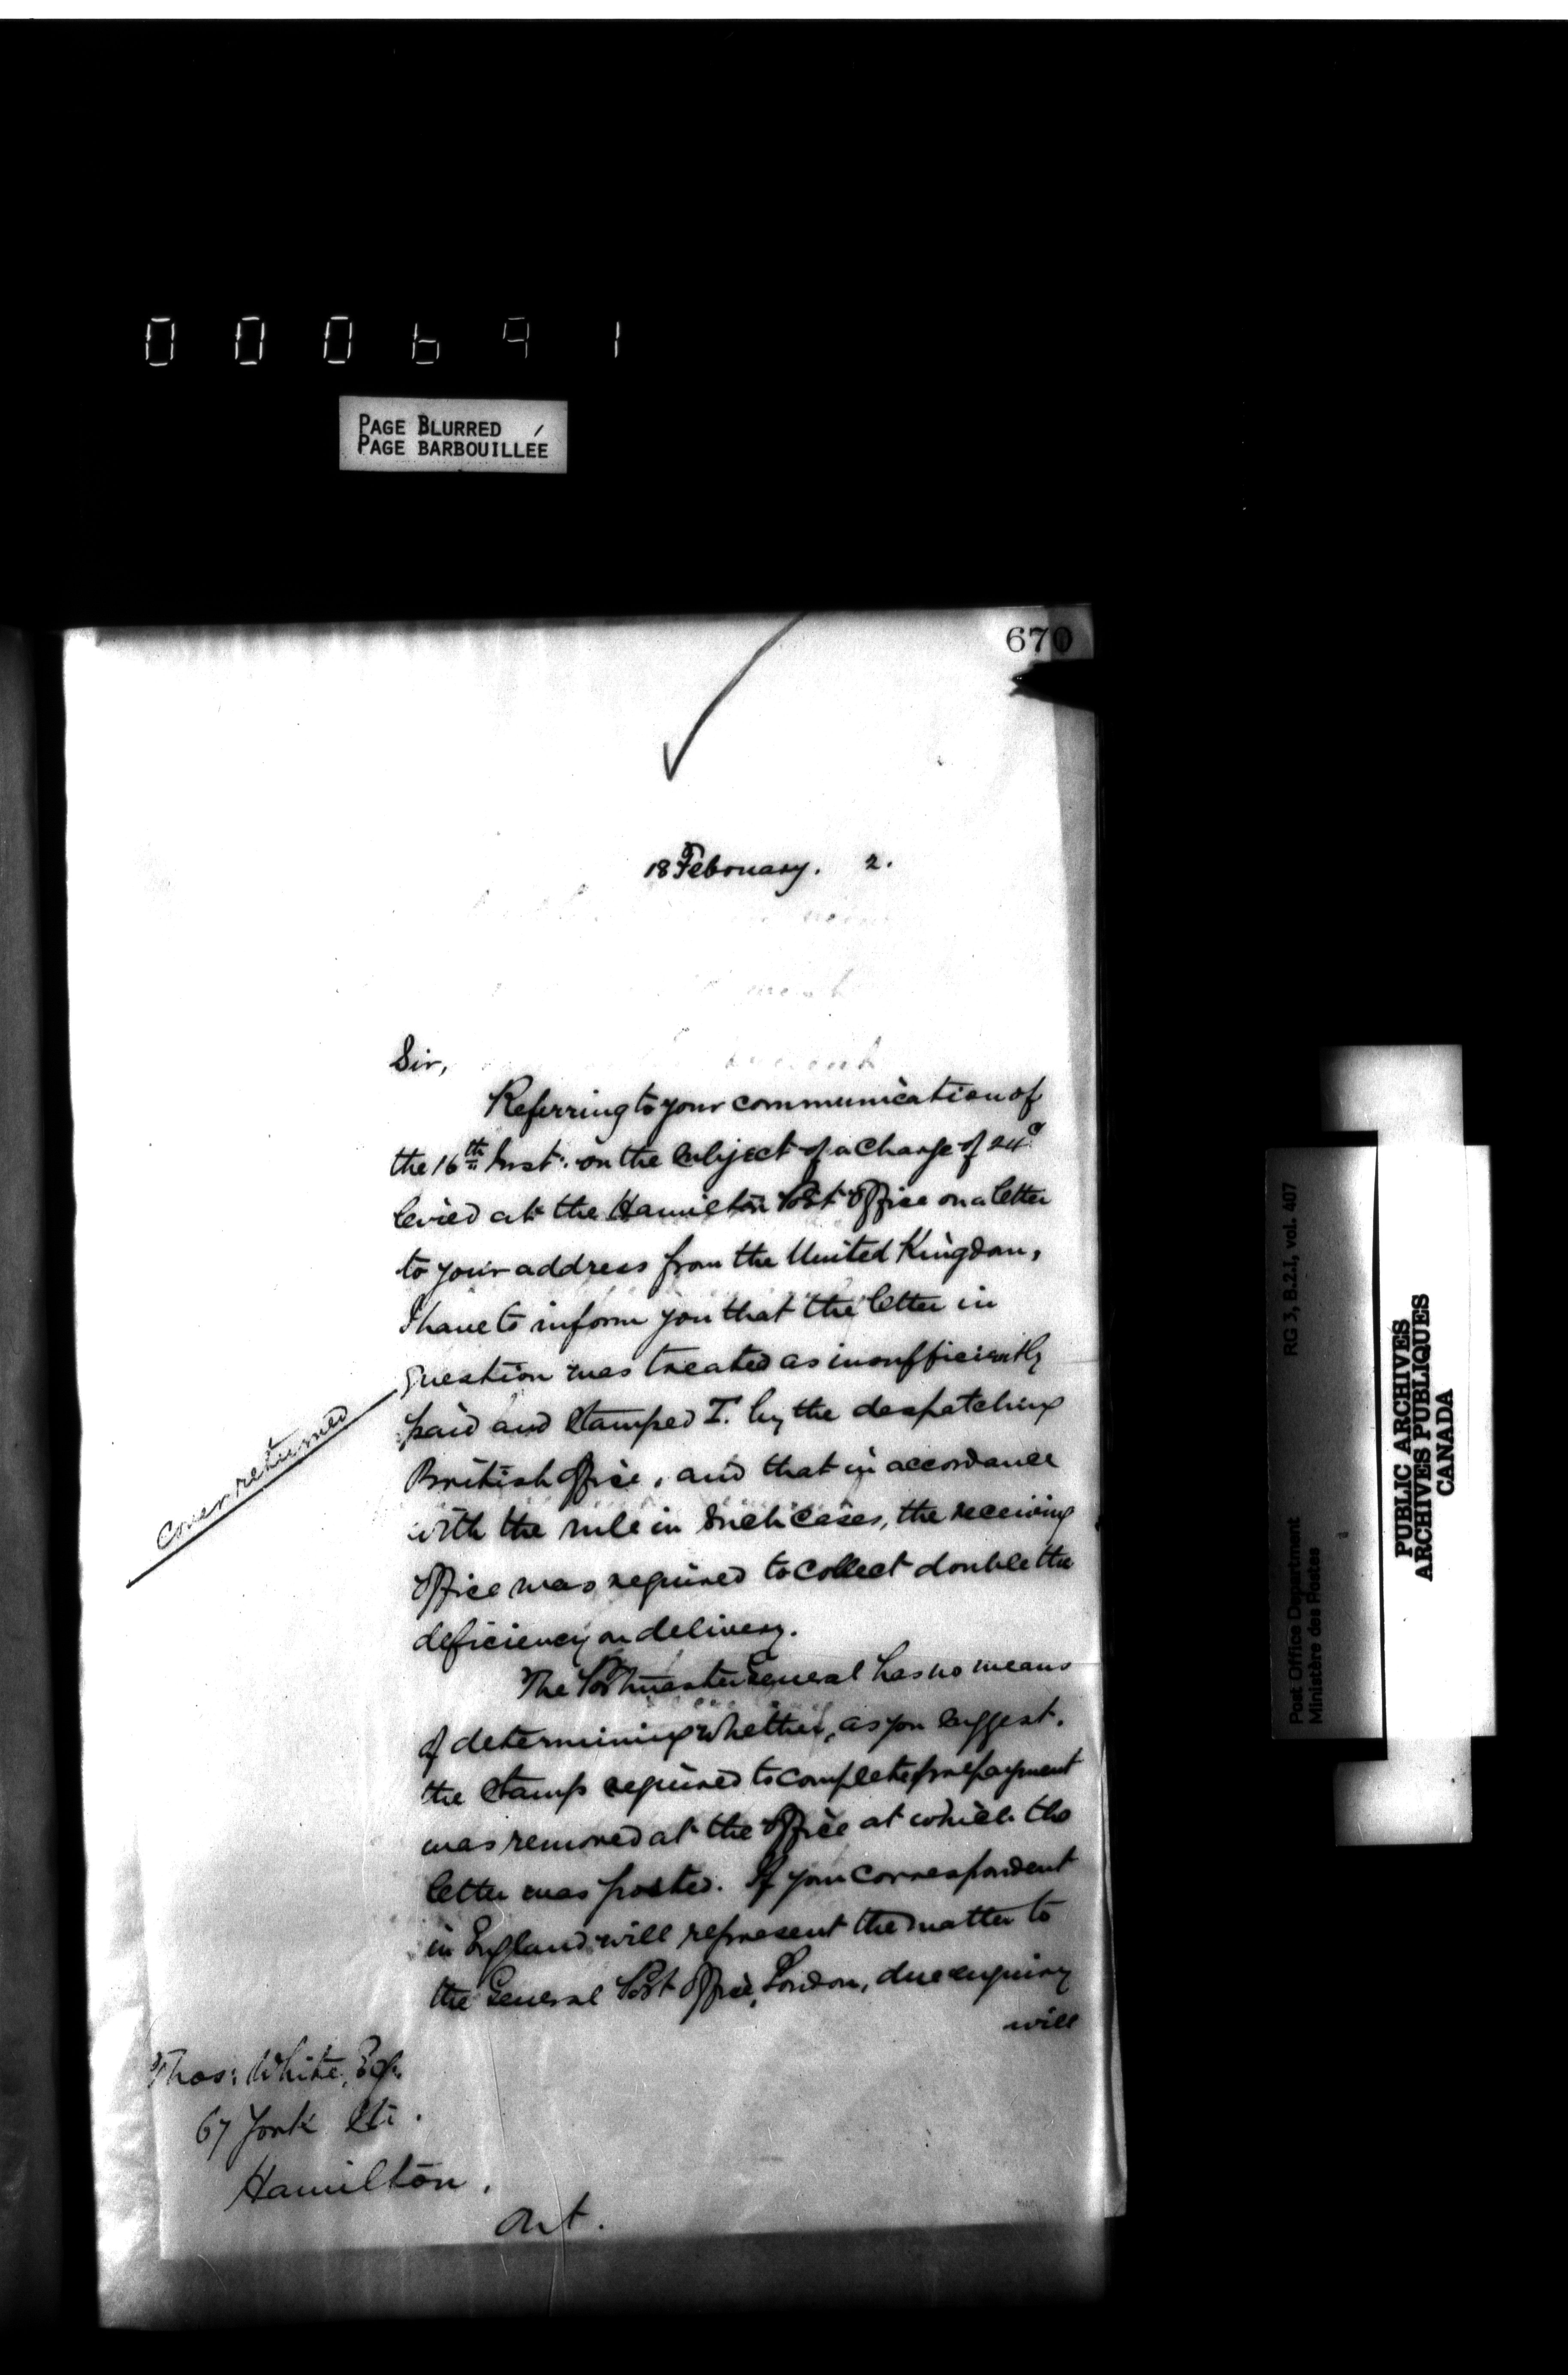 000691
PAGE BLURRED
PAGE BARBOUILLÉE
670
18 February. 2.
Sir,
Referring to your communication of
the 16th Inst: on the subject of a charge of 24c
levied at the Hamilton Post Office on a letter
to your address from the United Kingdom,
I have to inform you that the letter in
question was treated as insufficiently
paid and stamped T. by the despatching
British Office, and that in accordance
with the rule in such cases, the receiving
Office was required to collect double the
deficiency on delivery.
The Postmaster General has no means
of determining whether, as you suggest,
the stamp required to complete prepayment
was removed at the Office at which the
letter was posted. If your correspondent
in England will represent the matter to
the General Post Office, London, due enquiry
will
cover returned
Thos: White, Esq.
67 York St.
Hamilton.
Ont.
Post Office Department RG 3, B.2.I, vol. 407
Ministère des Postes
PUBLIC ARCHIVES
ARCHIVES PUBLIQUES
CANADA